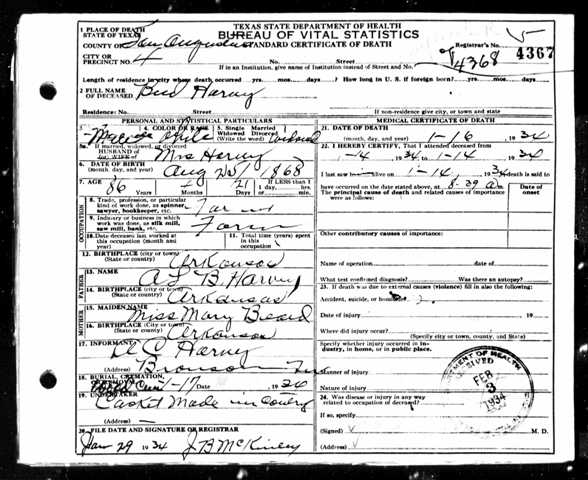 TEXAS STATE DEPARTMENT OF HEALTH
BUREAU OF VITAL STATISTICS
STANDARD CERTIFICATE OF DEATH
1 PLACE OF DEATH
STATE OF TEXAS
COUNTY OF San Augustine
CITY OR
PRECINCT NO. 4
No. Street
If in an Institution, give name of Institution instead of Street and No.
Registrar's No.
4367
4368
Length of residence in city where death occurred yrs. mos. days ? How long in U. S. if foreign born? yrs. mos. days
2 FULL NAME
OF DECEASED Harvey
Residence: No. Street
If non-residence give city, or town and state
PERSONAL AND STATISTICAL PARTICULARS
3 4 COLOR OR RACE 5 Single Married Widowed Divorced (Write the word)
White Widowed
5a If married, widowed, or divorced
HUSBAND OF
(or) WIFE OF Mrs Harvey
6 DATE OF BIRTH
(month, day, and year) Aug 1868
7 AGE IF LESS than
86 21 1 day, hrs. or min.
OCCUPATION
8. Trade, profession, or particular kind of work done, as spinner, sawyer, bookkeeper, etc.
9. Industry or business in which work was done, as silk mill, saw mill, bank, etc. Farm
10. Date deceased last worked at this occupation (month and year)
11. Total time (years) spent in this occupation
12. BIRTHPLACE (city or town)
(State or county) Arkansas
FATHER
13. NAME B. Harvey
14. BIRTHPLACE (city or town)
(State or county) Arkansas
MOTHER
15. MAIDEN NAME Miss Mary Beard
16. BIRTHPLACE (City or town)
(State or county) Arkansas
17. INFORMANT Harvey
(Address) Bronson
18. BURIAL, CREMATION,
1-17 Date 1934
19. UNDERTAKER Casket Made in
(Address)
20. FILE DATE AND SIGNATURE OF REGISTRAR
Jan 29 1934 J B McKinley
MEDICAL CERTIFICATE OF DEATH
21. DATE OF DEATH
(month, day, and year) 1-16, 1934
22. I HEREBY CERTIFY, That I attended deceased from
1-4 1934 to 1-14, 1934
I last saw alive on 1-14, 1934 death is said to
have occurred on the date stated above, at 8-30 a.m.
The principal cause of death and related causes of importance were as follows:
Date of onset
Other contributory causes of importance:
Name of operation Date of
What test confirmed diagnosis? Was there an autopsy?
23. If death was due to external causes (violence) fill in also the following:
Accident, suicide, or homicide?
Date of injury 19
Where did injury occur?
(Specify city or town, county, and State)
Specify whether injury occurred in industry, in home, or in public place.
Manner of injury
Nature of injury
24. Was disease or injury in any way related to occupation of deceased?
If so, specify
(Signed) M. D.
(Address)
DEPARTMENT OF HEALTH
RECEIVED
FEB
3
1934